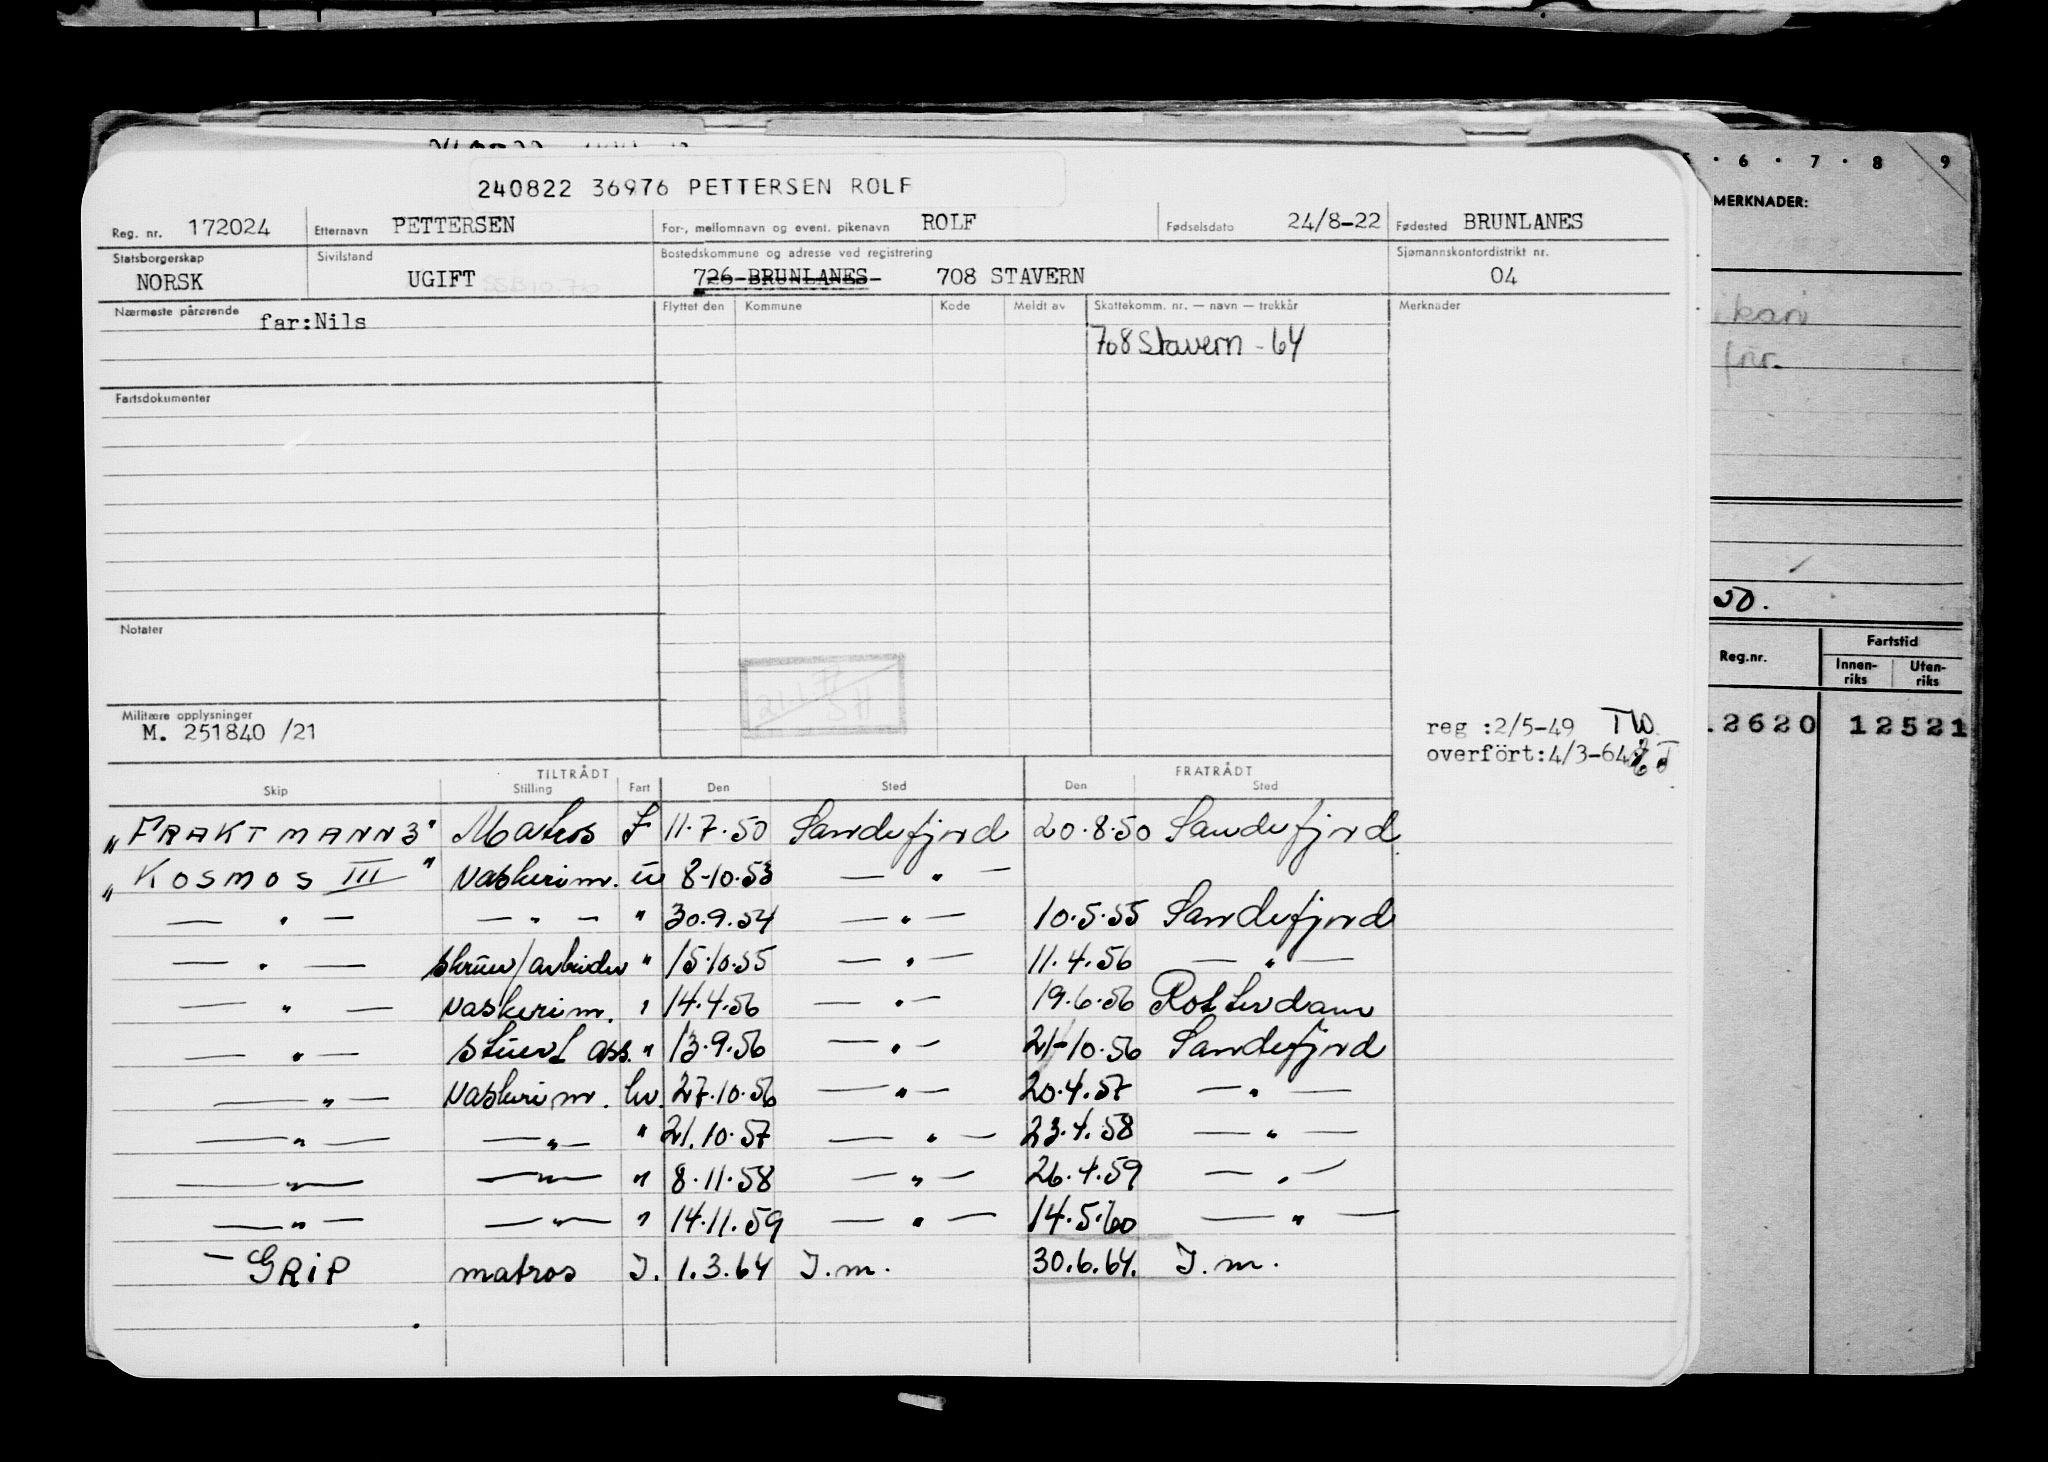 240822 36976 PETTERSEN ROLF
Reg. nr. 172024 Etternavn PETTERSEN For-, mellomnavn og event. pikenavn ROLF Fødselsdato 24/8-22 Fødested BRUNLANES
Statsborgerskap NORSK Sivilstand UGIFT SSB10.76 Bostedskommune og adresse ved registrering 726 BRUNLANES 708 STAVERN Sjømannskontordistrikt nr. 04
Nærmeste pårørende far:Nils Flyttet den Kommune Kode Meldt av Skattekomm. nr. — navn — trekkår Merknader
708 Stavern - 64
Fartsdokumenter
Notater
Militære opplysninger
M. 251840 /21
reg :2/5-49 TW.
overført:4/3-64
TILTRÅDT FRATRÅDT
Skip Stilling Fart Den Sted Den Sted
"FRAKTMANN 3" Matros I 11.7.50 Sandefjord 20.8.50 Sandefjord
"KOSMOS III" Vaskerim. u 8-10.53 — " —
— " — — " — " 30.9.54 — " — 10.5.55 Sandefjord
— " — Skruer/arbeider " 15.10.55 — " — 11.4.56 — " —
— " — Vaskerim. " 14.4.56 — " — 19.6.56 Rotterdam
— " — Stuert ass. " 13.9.56 — " — 21-10.56 Sandefjord
— " — Vaskerim. hv. 27.10.56 — " — 20.4.57 — " —
— " — — " — " 21.10.57 — " — 23.4.58 — " —
— " — — " — " 8.11.58 — " — 26.4.59 — " —
— " — — " — " 14.11.59 — " — 14.5.60 — " —
— GRIP matros I. 1.3.64 I.m. 30.6.64. I.m.
6 · 7 · 8 9
MERKNADER:
kari
för.
50.
Reg.nr. Fartstid
Innen-riks Uten-riks
.2620 12521